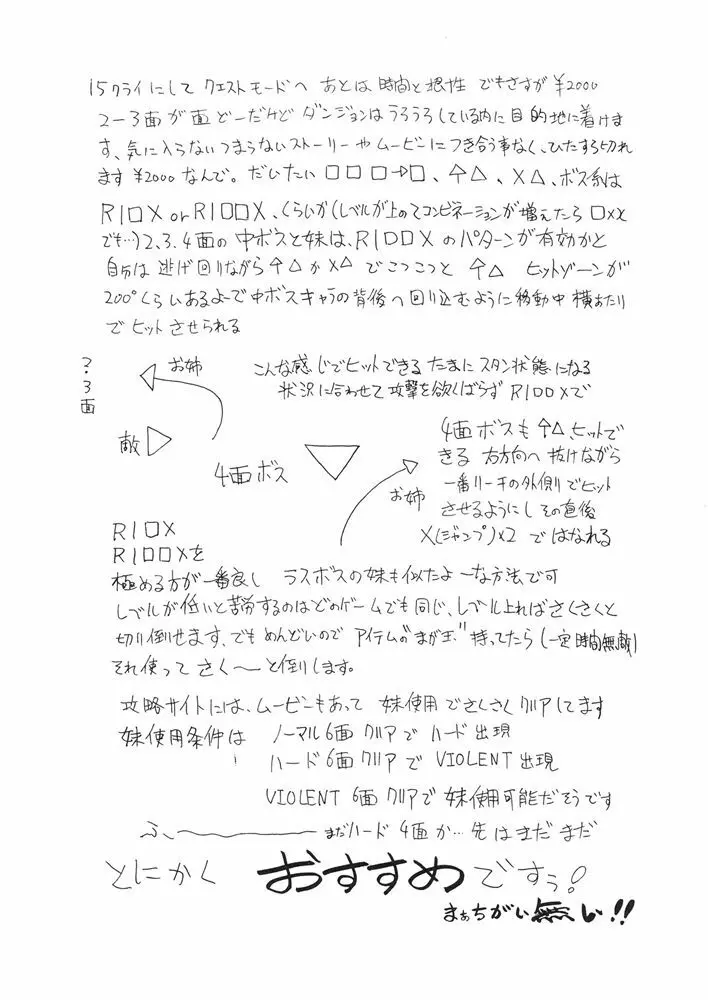 15クライにして クエストモードへ あとは 時間と根性 でもさすが ¥2000
2-3面が面どーだけど ダンジョンはうろうろしている内に目的地に着けま
す、気に入らないつまらないストーリーやムービーにつき合う事なく、ひたすら切れ
ます¥2000なんで。だいたい □□□→□、↑△、X△、ボス系は
R1□X or R1□□X、くらいか(レベルが上のてコンビネーションが増えたら □××
でも…)2、3、4面の中ボスと妹は、R1□□Xのパターンが有効かと
自分は 逃げ回りながら ↑△か X△ でこつこつと ↑△ ヒットゾーンが
200°くらいあるよーで中ボスキャラの背後へ回り込むように移動中 横あたり
でヒットさせられる
?・3面
お姉
敵
こんな感じでヒットできる たまに スタン状態になる
状況に合わせて攻撃を欲ばらず R1□□Xで
4面ボス
お姉
4面ボスも ↑△、ヒットで
きる 右方向へ 抜けながら
一番リーチの外側でヒット
させるようにし その直後
X(ジャンプ)×2 ではなれる
R1□X
R1□□Xを
極める方が一番良し ラスボスの妹も似たよーな方法で可
レベルが低いと苦労するのはどのゲームでも同じ、レベル上ればさくさくと
切り倒せます、でも めんどいので アイテムの"まが玉"持ってたら(一定時間無敵)
それ使って さく〜と倒します。
攻略サイトには、ムービーもあって 妹使用でさくさくクリアしてます
妹使用条件は ノーマル6面 クリアで ハード 出現
ハード 6面 クリアで VIOLENT 出現
VIOLENT 6面 クリアで 妹使用可能だそうです
ふ、〜 まだハード 4面か… 先はまだまだ
とにかく おすすめですぅ!
まぁちがい無し!!